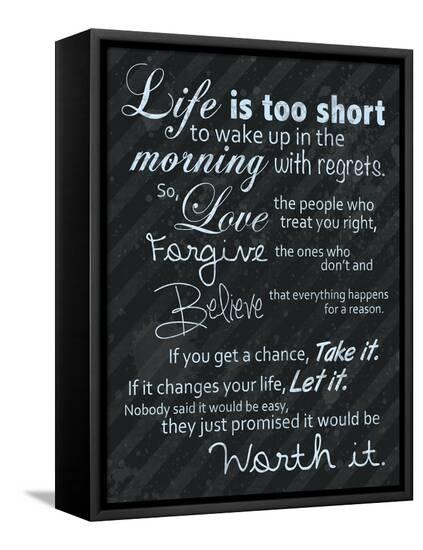 Life is too short
to wake up in the
morning with regrets.
So, Love the people who
treat you right,
Forgive the ones who
don't and
Believe that everything happens
for a reason.
If you get a chance, Take it.
If it changes your life, Let it.
Nobody said it would be easy,
they just promised it would be
Worth it.